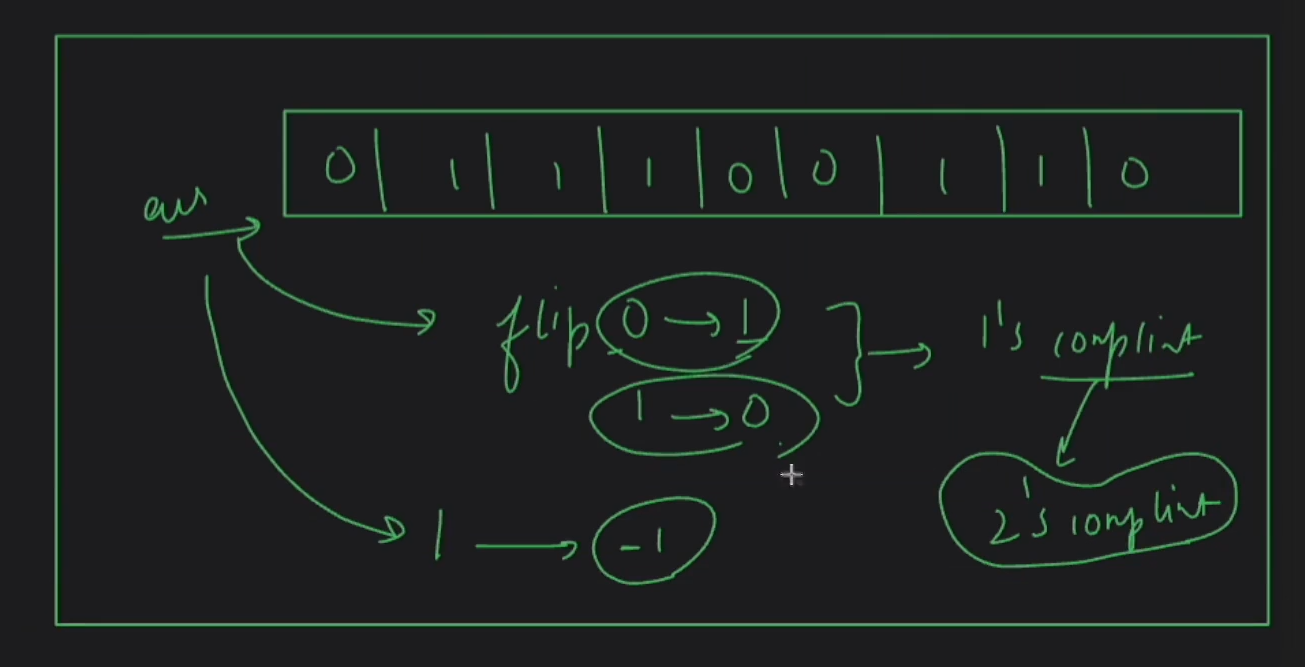 0 | 1 | 1 | 1 | 0 | 0 | 1 | 1 | 0
flip 0 → 1
1 → 0
1's complint
2's complint
1 → -1